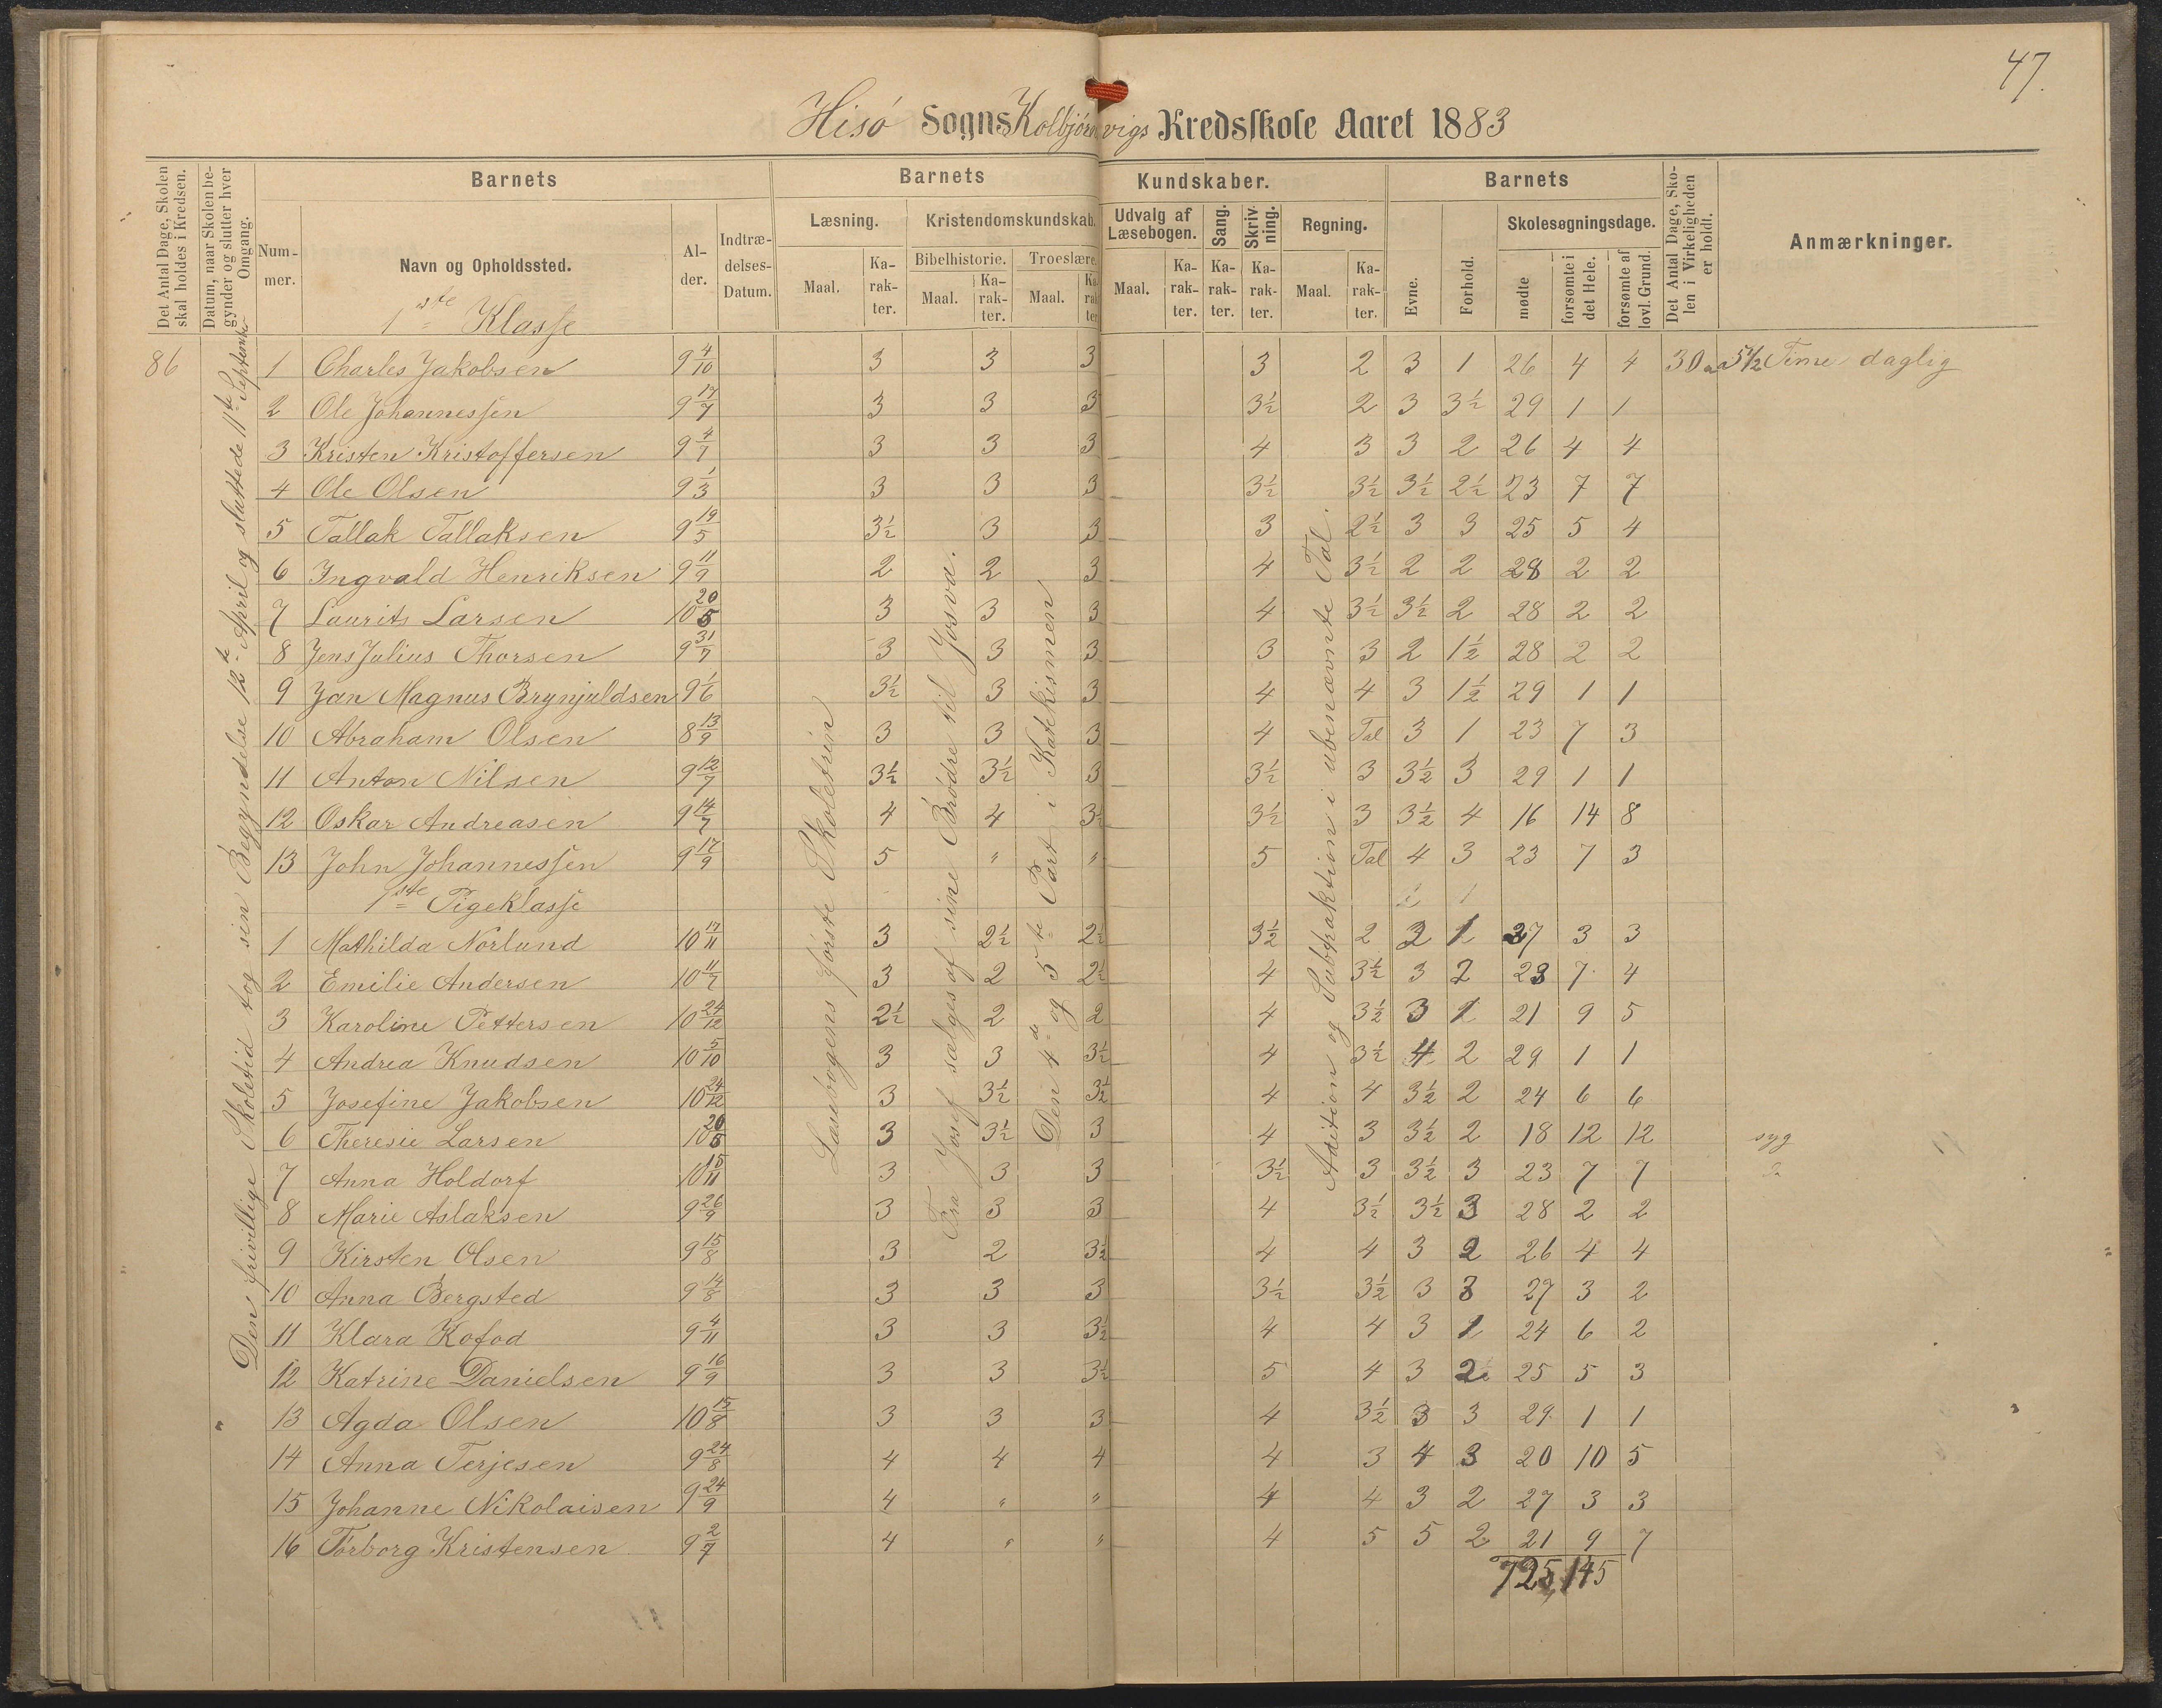 47.
Hisö Sogns Kolbjörnvigs Kredsskole Aaret 1883
Det Antal Dage, Skolen skal holdes i Kredsen.
Datum, naar Skolen begynder og slutter hver Omgang.
Barnets
Nummer.
Navn og Opholdssted.
Alder.
Indtrædelses-Datum.
Barnets Kundskaber.
Læsning.
Maal.
Karakter.
Kristendomskundskab.
Bibelhistorie.
Maal.
Karakter.
Troeslære.
Maal.
Karakter.
Udvalg af Læsebogen.
Maal.
Karakter.
Sang.
Karakter.
Skrivning.
Karakter.
Regning.
Maal.
Karakter.
Barnets
Evne.
Forhold.
Skolesøgningsdage.
mødte
forsømte i det Hele.
forsømte af lovl. Grund.
Det Antal Dage, Skolen i Virkeligheden er holdt.
Anmærkninger.
1ste Klasse
Den frivillige Skoletid tog sin Begyndelse 12te April og sluttede 11te September
Læsebogens første Skoletrin
Fra Josef sælges af sine Brødre til Josva.
Den 4de og 5te Part i Katekismen
Adition og Subtraktion i ubenævnte Tal.
86 1 Charles Jakobsen 9 4/10 3 3 3 3 2 3 1 26 4 4 30 a 5 1/2 Time daglig
2 Ole Johannessen 9 17/7 3 3 3 3½ 2 3 3½ 29 1 1
3 Kristen Kristoffersen 9 4/7 3 3 3 4 3 3 2 26 4 4
4 Ole Olsen 9 1/3 3 3 3 3½ 3½ 3½ 2½ 23 7 7
5 Tallak Tallaksen 9 19/5 3½ 3 3 3 2½ 3 3 25 5 4
6 Ingvald Henriksen 9 11/9 2 2 3 4 3½ 2 2 28 2 2
7 Laurits Larsen 10 20/5 3 3 3 4 3½ 3½ 2 28 2 2
8 Jens Julius Thorsen 9 31/7 3 3 3 3 3 2 1½ 28 2 2
9 Jan Magnus Brynjuldsen 9 1/6 3½ 3 3 4 4 3 1½ 29 1 1
10 Abraham Olsen 8 13/9 3 3 3 4 Tal 3 1 23 7 3
11 Anton Nilsen 9 12/7 3½ 3½ 3 3½ 3 3½ 3 29 1 1
12 Oskar Andreasen 9 14/7 4 4 3½ 3½ 3 3½ 4 16 14 8
13 John Johannessen 9 17/9 5 " " 5 Tal 4 3 23 7 3
1ste Pigeklasse
1 Mathilda Norlund 10 17/11 3 2½ 2½ 3½ 2 2 1 27 3 3
2 Emilie Andersen 10 11/7 3 2 2½ 4 3½ 3 2 23 7 4
3 Karoline Pettersen 10 24/12 2½ 2 2 4 3½ 3 1 21 9 5
4 Andrea Knudsen 10 5/10 3 3 3½ 4 3½ 4 2 29 1 1
5 Josefine Jakobsen 10 24/12 3 3½ 3½ 4 4 3½ 2 24 6 6
6 Theresie Larsen 10 20/5 3 3½ 3 4 3 3½ 2 18 12 12 syg
7 Anna Holdorf 10 15/11 3 3 3 3½ 3 3½ 3 23 7 7
8 Marie Aslaksen 9 26/9 3 3 3 4 3½ 3½ 3 28 2 2
9 Kirsten Olsen 9 15/8 3 2 3½ 4 4 3 2 26 4 4
10 Anna Bergsted 9 14/8 3 3 3 3½ 3½ 3 3 27 3 2
11 Klara Kofod 9 4/11 3 3 3½ 4 4 3 1 24 6 2
12 Katrine Danielsen 9 16/9 3 3 3½ 5 4 3 2 25 5 3
13 Agda Olsen 10 15/8 3 3 3 4 3½ 3 3 29 1 1
14 Anna Terjesen 9 24/8 4 4 4 4 3 4 3 20 10 5
15 Johanne Nikolaisen 9 24/9 4 " " 4 4 3 2 27 3 3
16 Torborg Kristensen 9 2/7 4 " " 4 5 5 2 21 9 7
725 145